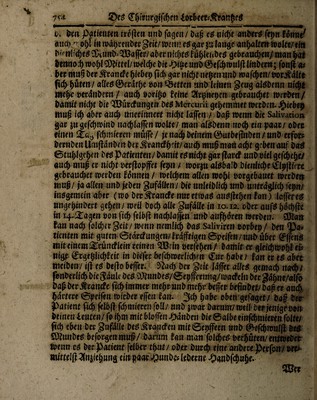 754 Des Chirurgischen Lorbeer-Krantzes
den Patienten trösten und sagen / daß es nicht anders seyn könne
auch wohl in währender Zeit / wenn es gar zu lange anhalten wolte / ein
dienliches Mund-Wasser / aber nichts kühlendes gebrauchen / man hat
dennoch wohl Mittel / welche die Hitze und Geschwulst lindern; sonst a-
ber muß der Krancke hiebey sich gar nicht netzen und waschen / vor Kälte
sich hüten / alles Geräthe von Betten und leinen Zeug alsdenn nicht
mehr verändern / auch vorjtzo keine Artzneyen gebrauchet werden /
damit nicht die Würckungen des Mercurii gehemmet werden. Hiebey
muß ich aber auch unerinnert nicht lassen / daß wenn die Salivation
gar zu geschwind nachlassen wolte / man alsdenn noch ein paar / oder
einen Tag, schmieren müsse / je nach deinem Gutbefinden / und erfor-
dernden Umständen der Kranckheit / auch muß man acht geben auf das
Stuhlgehen des Patienten / damit es nicht gar starck und viel geschehe /
auch muß er nicht verstopffet seyn / worzu alsbald dienliche Clystire
gebrauchet werden können / welchem allen wohl vorgebauet werden
muß / ja allen und jeden Zufällen / die unleidlich und unerträglich seyn /
insgemein aber (wo der Krancke nur etwas ausstehen kan) lasset es
ungehindert gehen / weil doch alle Zufälle in 10. 12. oder aufs höchste
in 14. Tagen von sich selbst nachlassen und aufhören werden. Man
kan nach solcher Zeit / wenn nemlich das Saliviren vorbey / den Pa-
tienten mit guten Stärckungen / kräfftigen Speisen / und über Essens
mit einem Trüncklein reinen Wein versehen / damit er gleichwohl ei-
nige Ergetzlichkeit in dieser beschwerlichen Cur habe / kan er es aber
meiden / ist es desto besser. Nach der Zeit lässet alles gemach nach /
sonderlich die Fäule des Mundes / Seyfferung / wackeln der Zähne / also
daß der Krancke sich immer mehr und mehr besser befindet / daß er auch
härtere Speisen wieder essen kan. Ich habe oben gesaget / daß der
Patient sich selbst schmieren soll / und zwar darum / weil der jenige von
deinen Leuten / so ihm mit blossen Händen die Salbe einschmieren solte /
sich eben der Zufälle des Krancken mit Seyffern und Geschwulst des
Mundes besorgen muß / darum kan man solches verhüten / entweder
wenn es der Patient selber thut / oder durch eine andere Person / ver-
mittelst Anziehung ein paar Hunde-lederne Handschuhe.
Wer